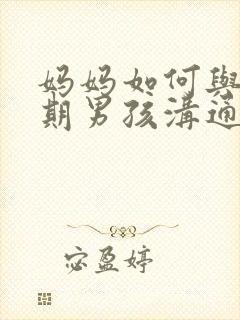 妈妈如何與
期男孩溝通
宓盈婷